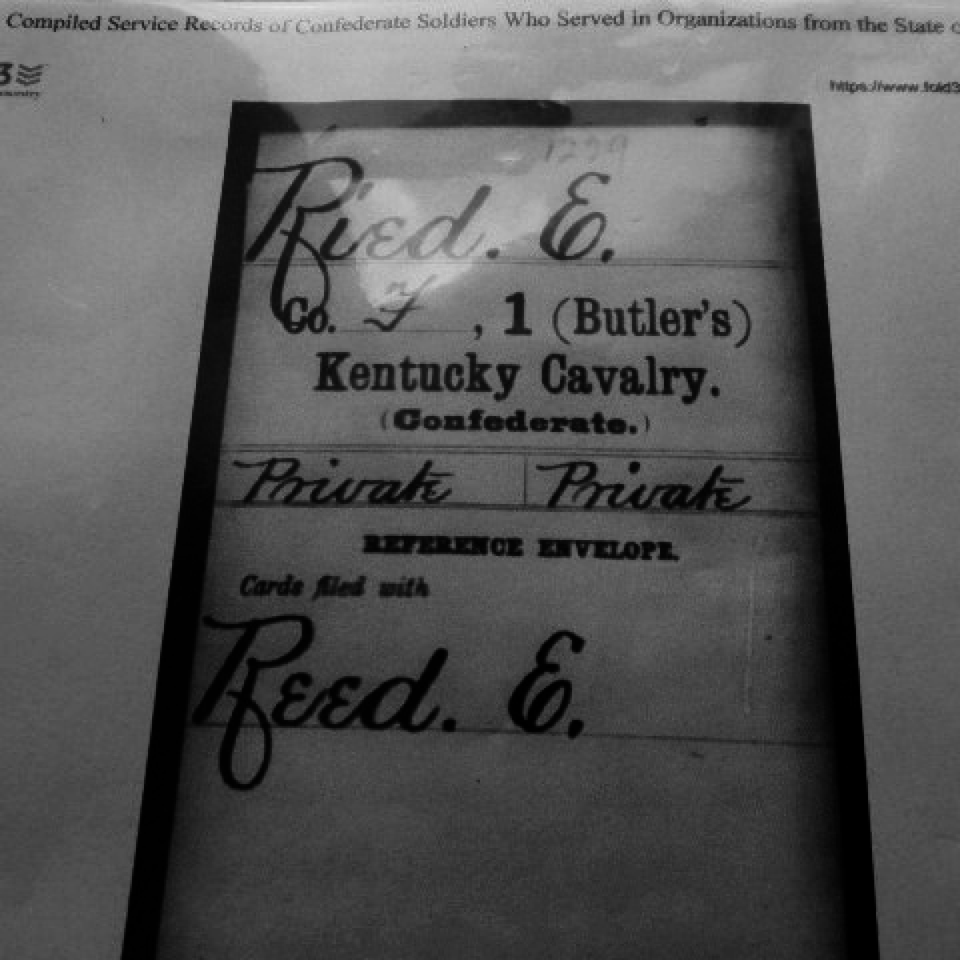 Compiled Service Records of Confederate Soldiers Who Served in Organizations from the State
3
https://www.fold3
1239
Ried. E.
Co. F, 1 (Butler's)
Kentucky Cavalry.
(Confederate.)
Private Private
REFERENCE ENVELOPE.
Cards filed with
Reed. E.